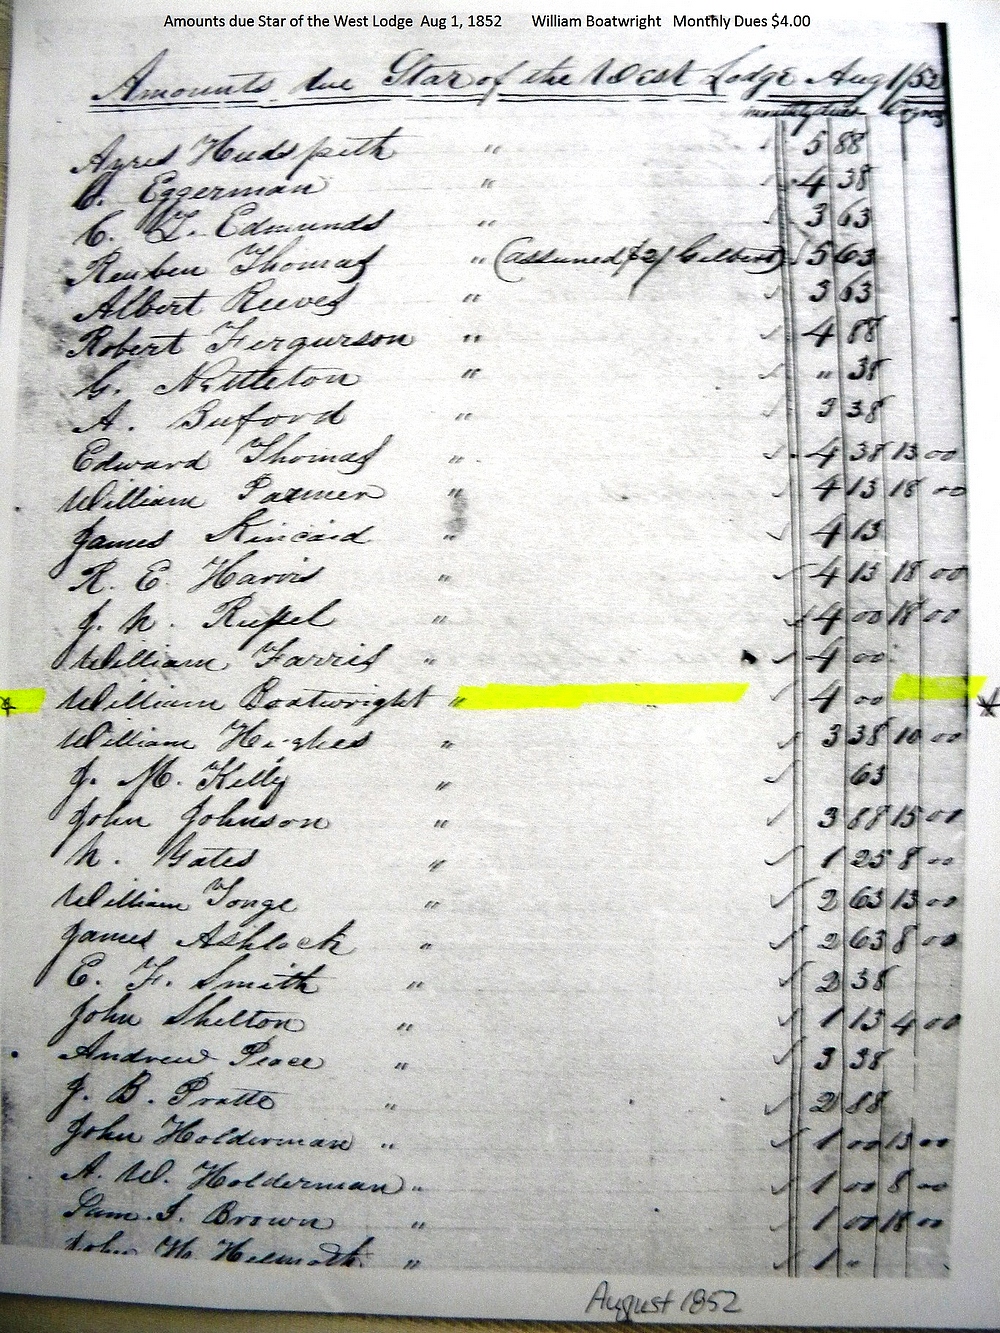 Amounts due Star of the West Lodge Aug 1, 1852 William Boatwright Monthly Dues $4.00
Amounts due Star of the West Lodge Aug 1/52
monthly dues
Ayres Hudspeth " 5 88
Eggerman " 4 38
C. L. Edmunds " 3 63
Reuben Thomas " (assumed $2/ Gilbert) 5 63
Albert Reeves " 3 63
Robert Fergurson " 4 88
G. Nettleton " " 38
A. Buford " 3 38
Edward Thomas " 4 38 13 00
William Paxmer " 4 13 18 00
James Kincaid " 4 13
R. E. Harris " 4 13 18 00
J. N. Russel " 4 00 18 00
William Farris " 4 00
William Boatwright " 4 00
William Hughes " 3 38 10 00
J. M. Kelly " 63
John Johnson " 3 88 15 00
N. Gates " 1 25 8 00
William Tonge " 2 63 13 00
James Ashlock " 2 63 8 00
E. F. Smith " 2 38
John Shelton " 1 13 4 00
Andrew Peace " 3 38
J. B. Pratte " 2 88
John Holderman " 1 00 13 00
A. W. Holderman " 1 00 8 00
Sam. S. Brown " 1 00 18 00
John H. " 1 "
August 1852